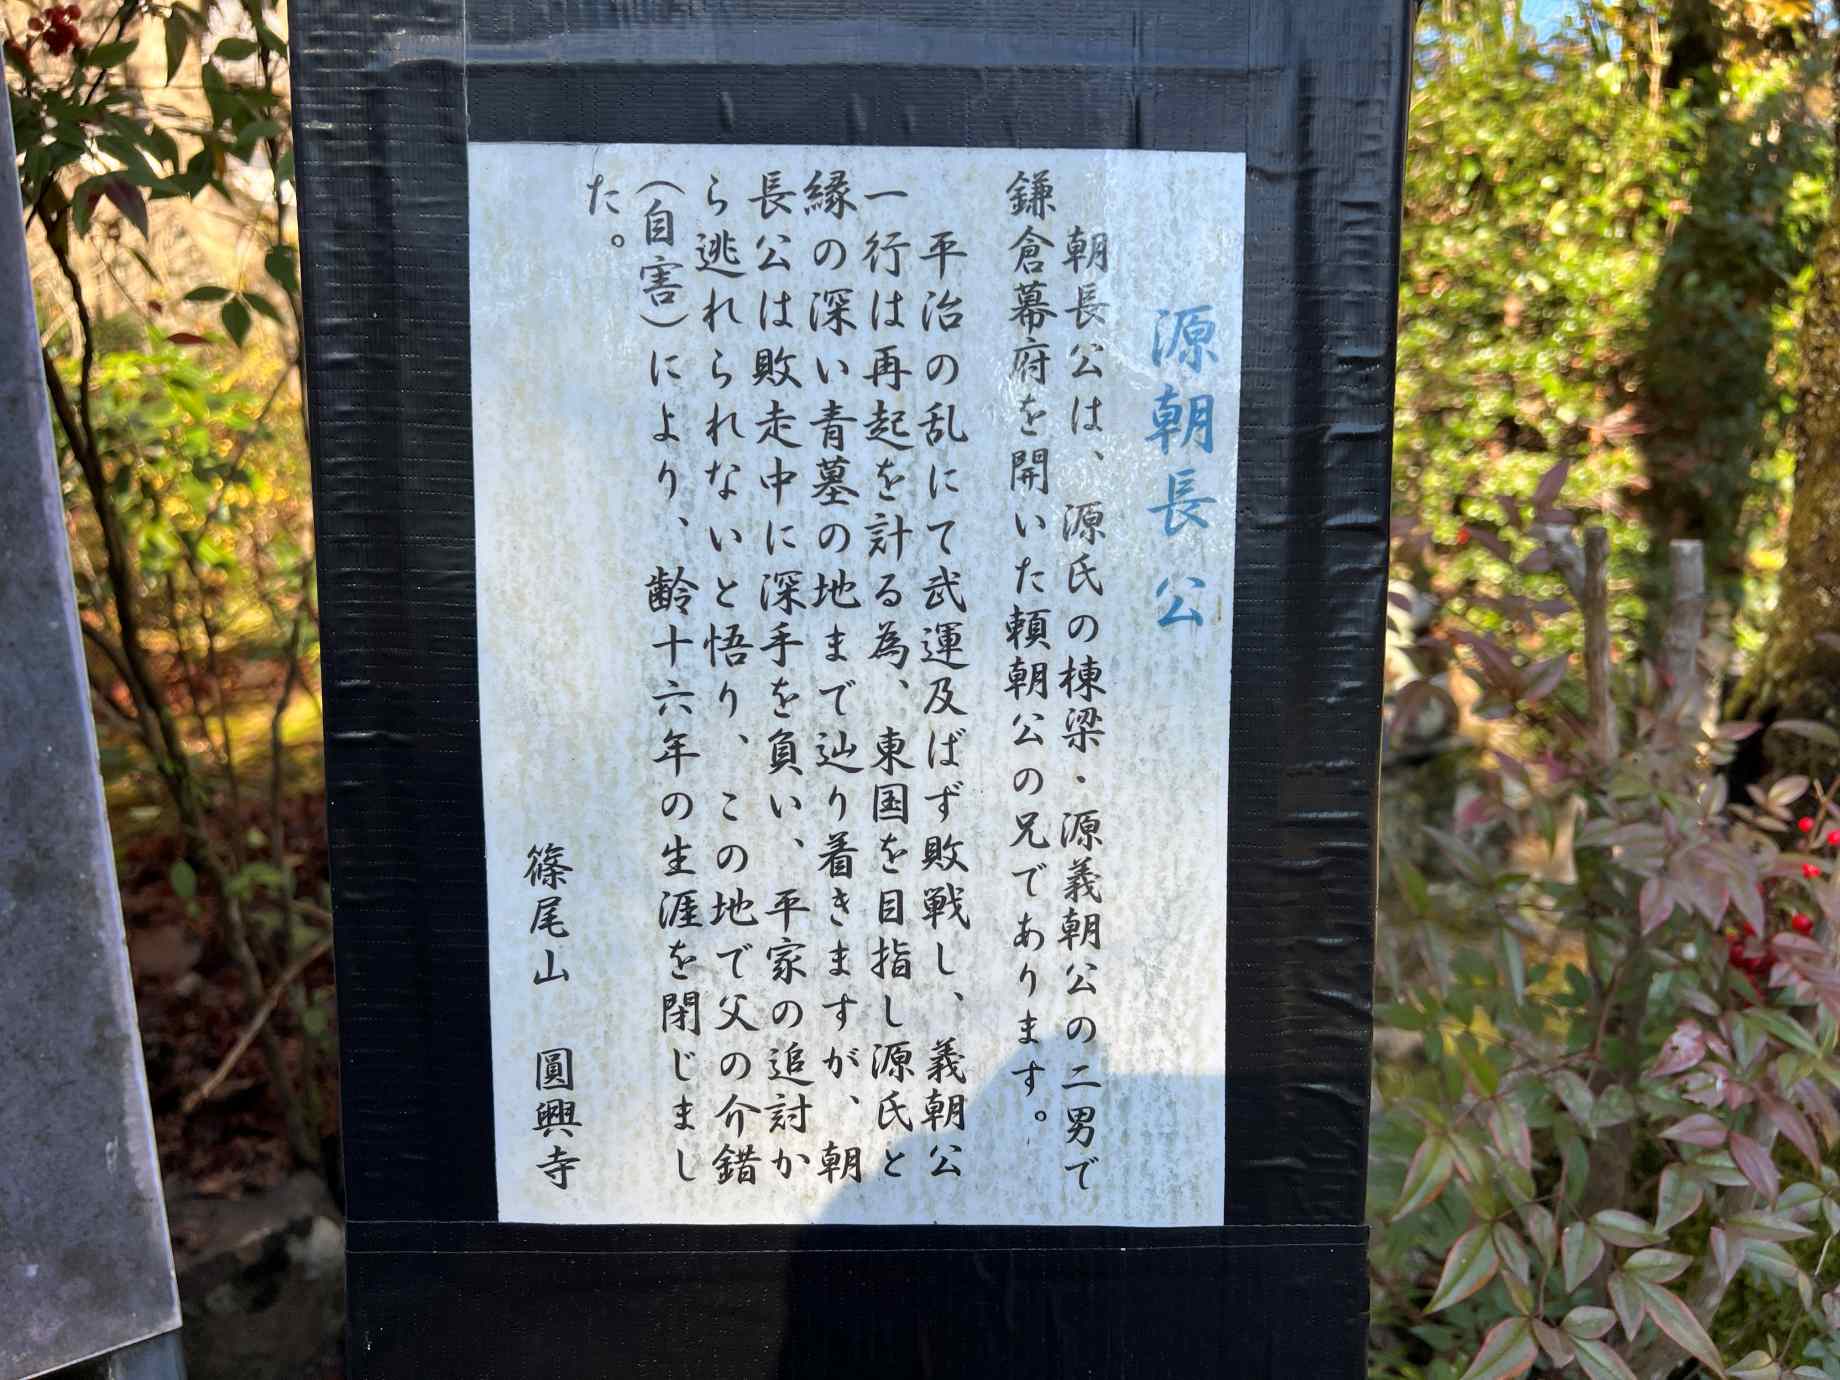 源朝長公
朝長公は、源氏の棟梁・源義朝公の二男で
鎌倉幕府を開いた頼朝公の兄であります。
平治の乱にて武運及ばず敗戦し、義朝公
一行は再起を計る為、東国を目指し源氏と
縁の深い青墓の地まで辿り着きますが、朝
長公は敗走中に深手を負い、平家の追討か
ら逃れられないと悟り、この地で父の介錯
（自害）により、齢十六年の生涯を閉じまし
た。
篠尾山　圓興寺